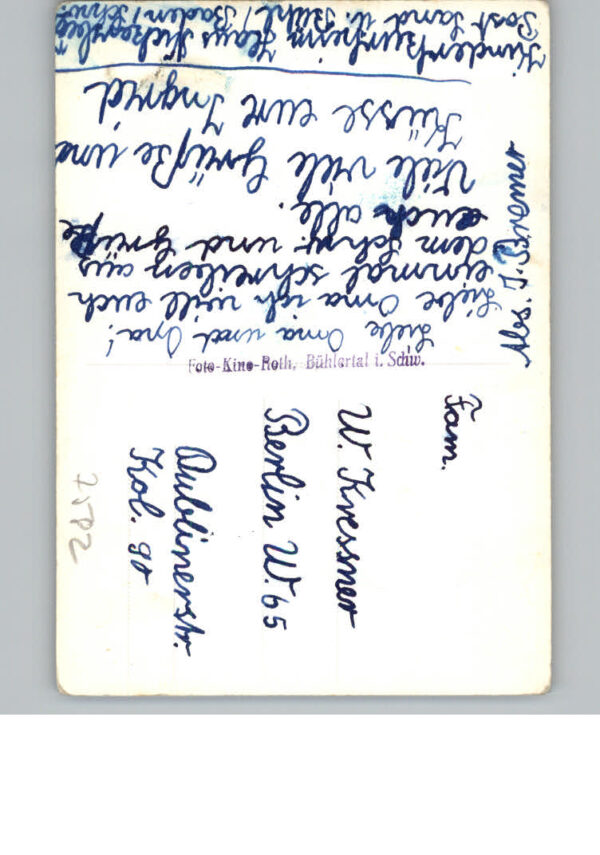 Liebe Oma und Opa!
Liebe Oma ich will euch
einmal schreiben aus
dem Schw. und Grüße
euch alle.
Viele viele Grüße und
Küsse eure Ingrid.
Kinderkurheim Haus
Post Sand ü. Bühl / Baden / Schw.
Abs. I.
Foto-Kino-Roth, Bühlertal i. Schw.
Fam.
W. Kressner
Berlin W. 65
Dublinerstr.
Kol. 90